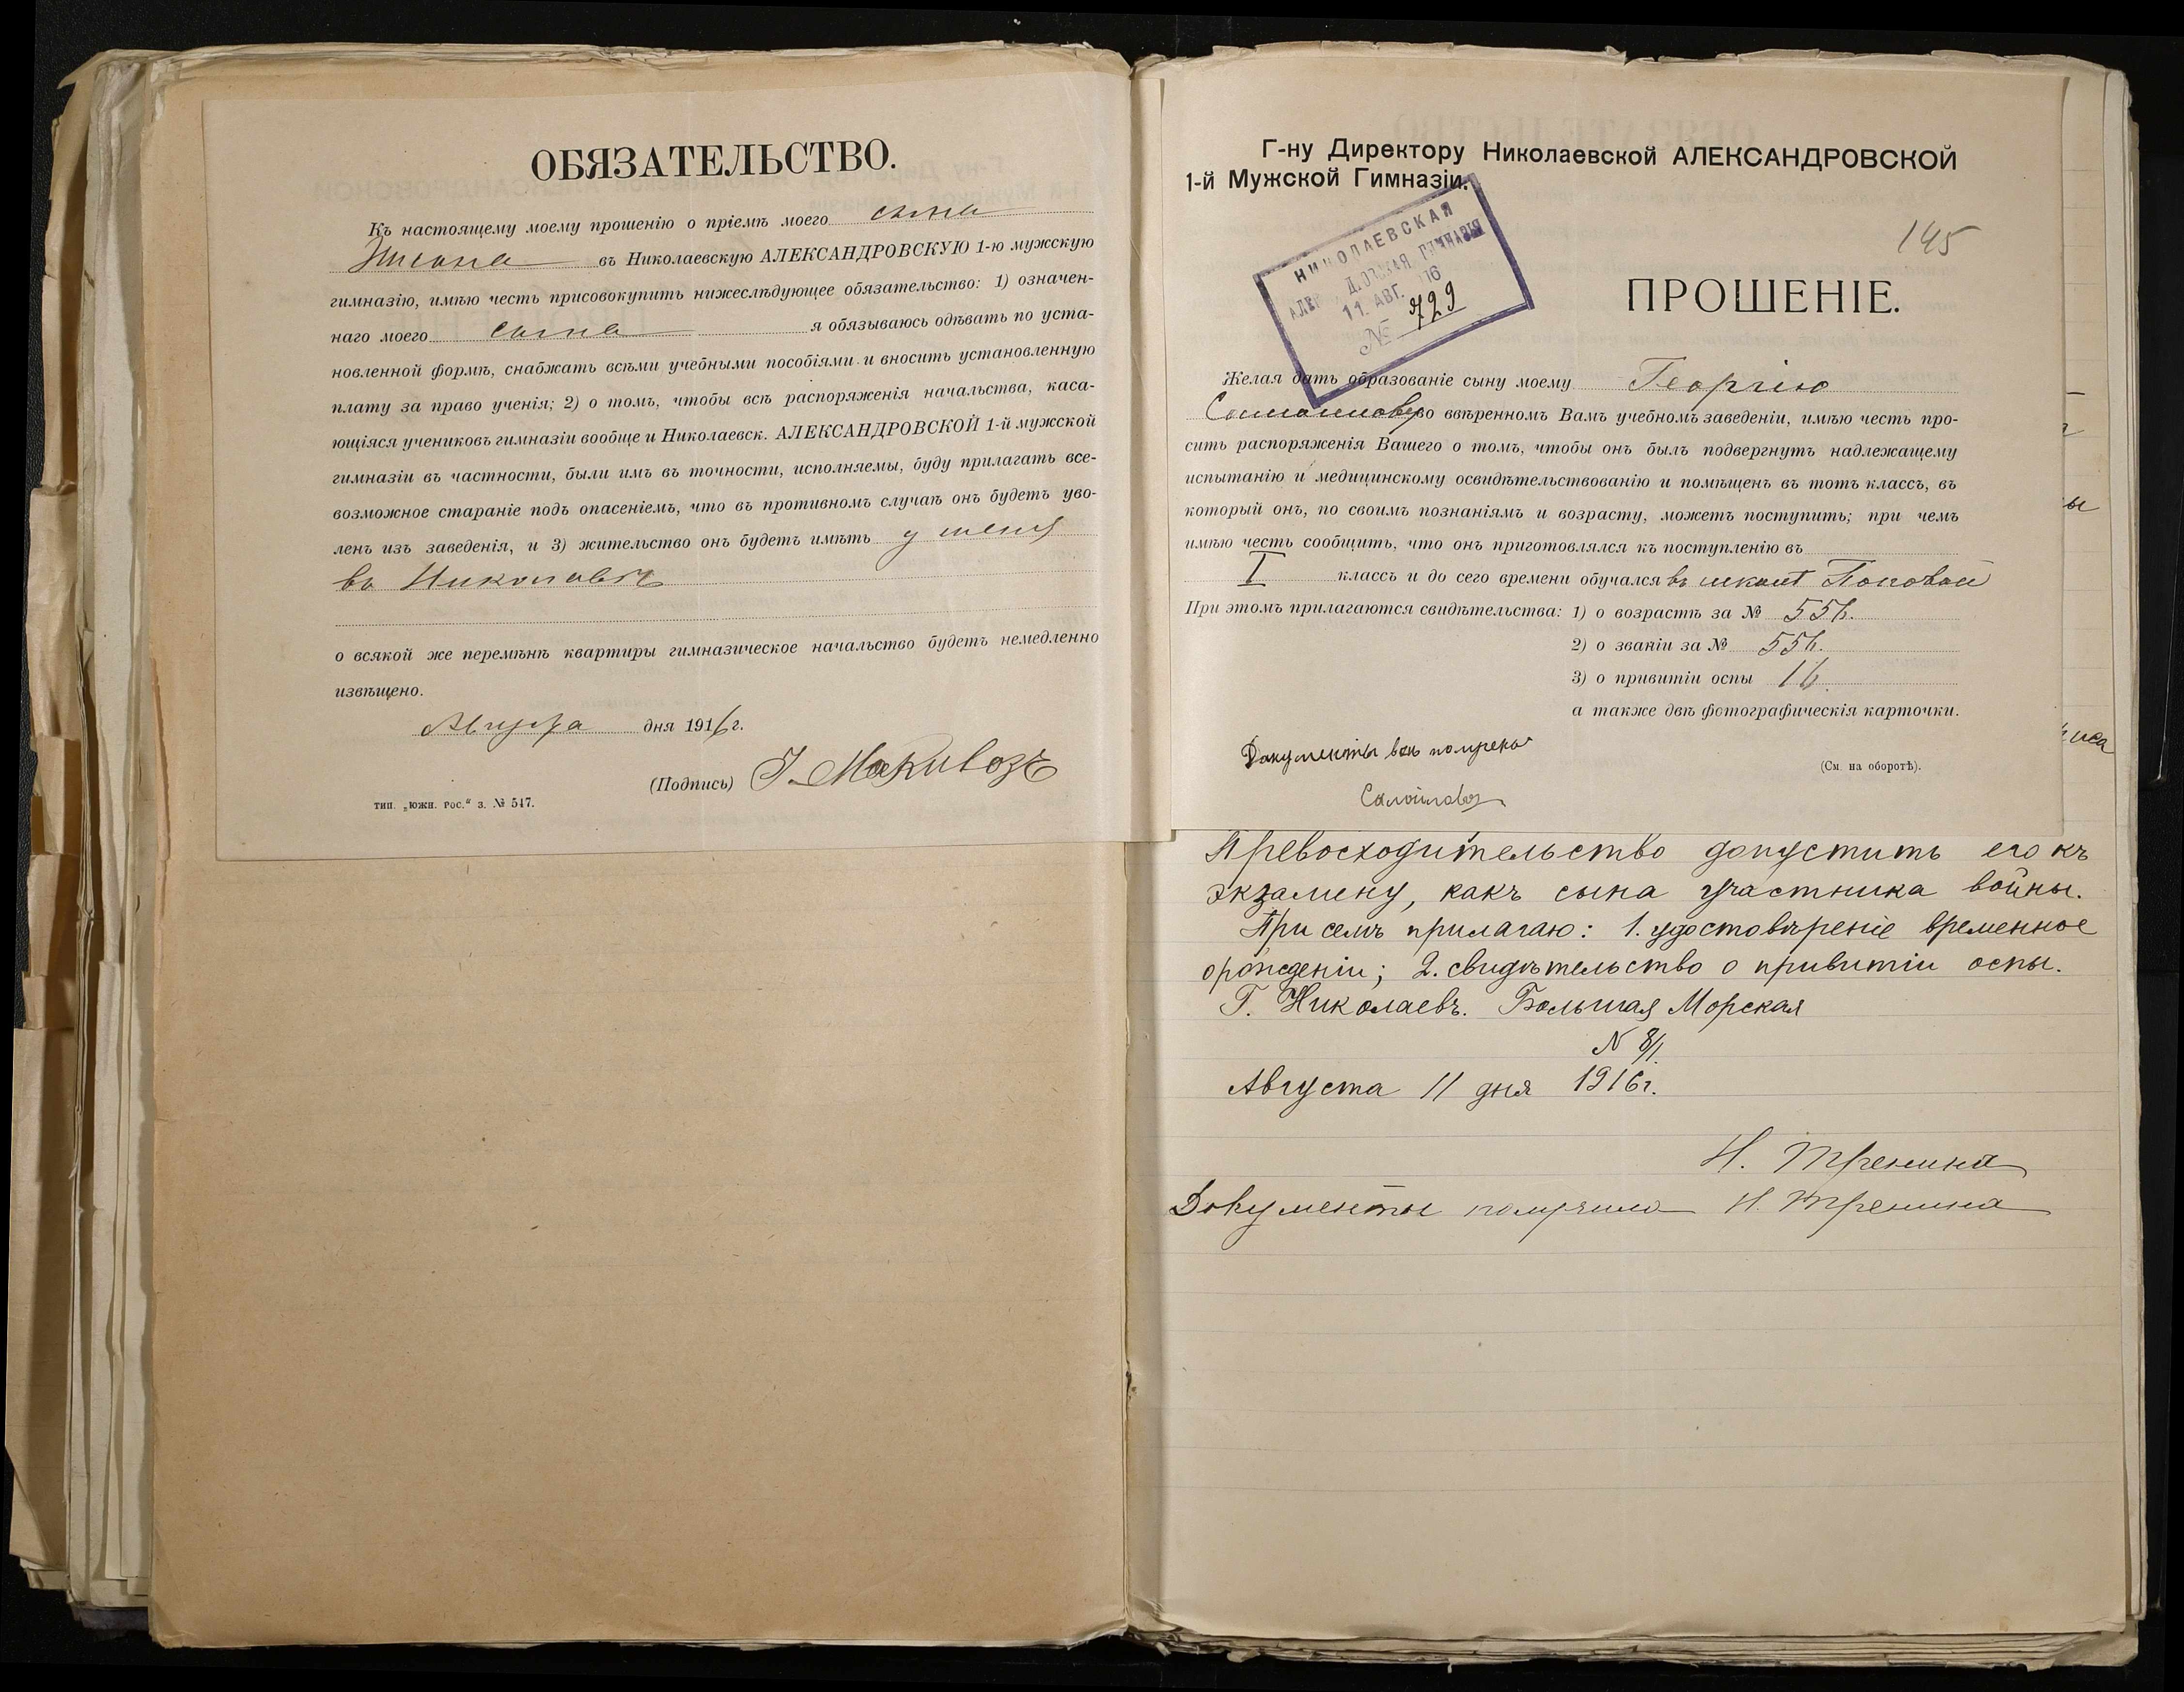 ОБЯЗАТЕЛЬСТВО.
Къ настоящему моему прошенію о пріемѣ моего сына
въ Николаевскую АЛЕКСАНДРОВСКУЮ 1-ю мужскую
гимназію, имѣю честь присовокупить нижеслѣдующее обязательство: 1) означен-
наго моего сына я обязываюсь одѣвать по уста-
новленной формѣ, снабжать всѣми учебными пособіями и вносить установленную
плату за право ученія; 2) о томъ, чтобы всѣ распоряженія начальства, каса-
ющіяся учениковъ гимназіи вообще и Николаевск. АЛЕКСАНДРОВСКОЙ 1-й мужской
гимназіи въ частности, были имъ въ точности, исполняемы, буду прилагать все-
возможное стараніе подъ опасеніемъ, что въ противномъ случаѣ онъ будетъ уво-
ленъ изъ заведенія, и 3) жительство онъ будетъ имѣть у меня
въ Николаевѣ
о всякой же перемѣнѣ квартиры гимназическое начальство будетъ немедленно
извѣщено.
Августа дня 1916 г.
(Подпись)
тип. „южн. рос.“ з. № 547.
Г-ну Директору Николаевской АЛЕКСАНДРОВСКОЙ
1-й Мужской Гимназіи.
НИКОЛАЕВСКАЯ
ГИМНАЗІЯ
11. АВГ. 916
№ 729
145
ПРОШЕНІЕ.
Желая дать образованіе сыну моему Георгію
во ввѣренномъ Вамъ учебномъ заведеніи, имѣю честь про-
сить распоряженія Вашего о томъ, чтобы онъ былъ подвергнутъ надлежащему
испытанію и медицинскому освидѣтельствованію и помѣщенъ въ тотъ классъ, въ
который онъ, по своимъ познаніямъ и возрасту, можетъ поступить; при чемъ
имѣю честь сообщить, что онъ приготовлялся къ поступленію въ
I классъ и до сего времени обучался въ школѣ Поповой
При этомъ прилагаются свидѣтельства: 1) о возрастѣ за № 556.
2) о званіи за № 556.
3) о привитіи оспы 16.
а также двѣ фотографическія карточки.
Документы
(См. на оборотѣ).
Превосходительство допустить его къ
экзамену, какъ сына участника войны.
При семъ прилагаю: 1. удостовѣреніе временное
о рожденіи; 2. свидѣтельство о привитіи оспы.
Г. Николаевъ. Большая Морская
N 8/1.
Августа 11 дня 1916 г.
Н. Тренина
Документы получила Н. Тренина